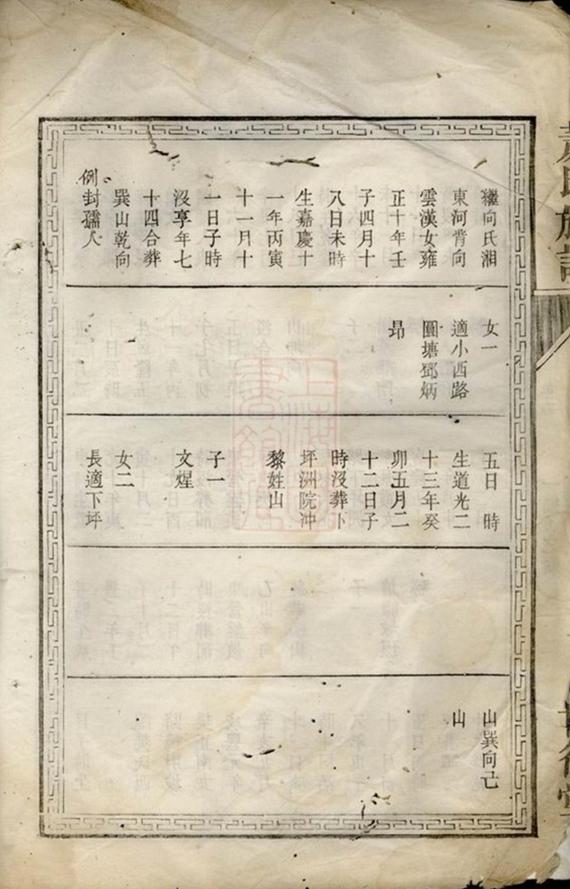 繼向氏湘
東河背向
雲漢女雍
正十年壬
子四月十
八日未時
生嘉慶十
一年丙寅
十一月十
一日子時
沒享年七
十四合葬
巽山乾向
例封孺人
女一
適小西路
圓塘鄧炳
昂
五日時
生道光二
十三年癸
卯五月二
十二日子
時沒葬下
坪洲院冲
黎姓山
子一
文煋
女二
長適下坪
山巽向己
山